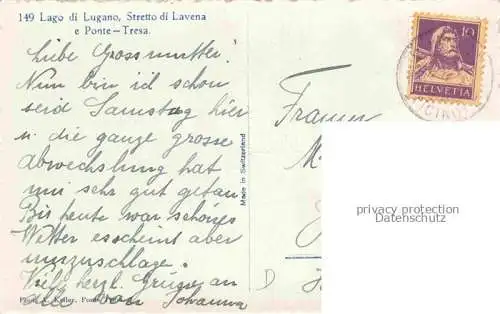 149 Lago di Lugano, Stretto di Lavena
e Ponte-Tresa.
Liebe Grossmutter.
Nun bin ich schon
seid Samstag hier
u. die ganze grosse
Abwechslung hat
mir sehr gut getan.
Bis heute war schönes
Wetter es scheint aber
umzuschlage.
Viele herzl. Grüsse an
alle von Johanna
Made in Switzerland
10
HELVETIA
Frauen
privacy protection
Datenschutz